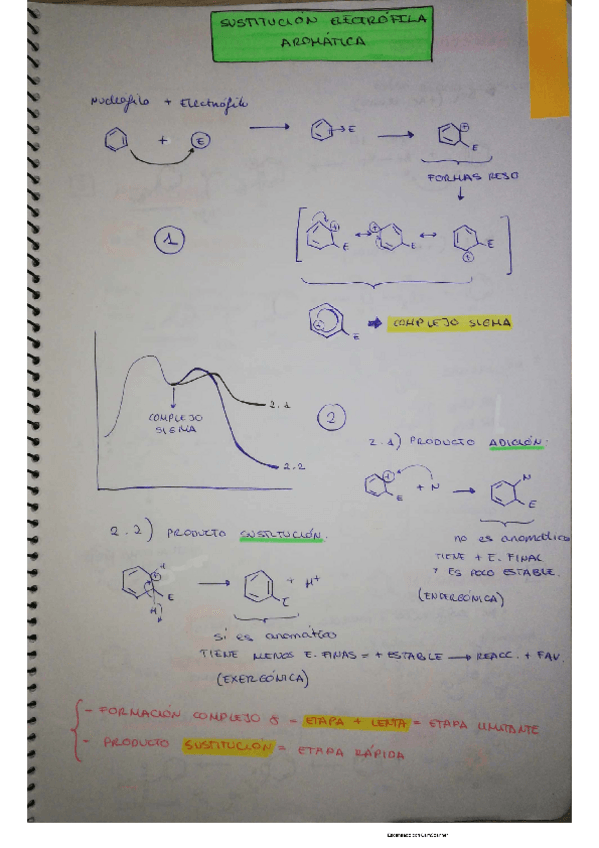 SUSTITUCIÓN ELECTRÓFILA
AROMÁTICA
Nucleófilo + Electrófilo
+ E
E
+
E
FORMAS RESO
1
+ E
+ E
E
+
+ E
COMPLEJO SIGMA
COMPLEJO
SIGMA
2.1
2.2
2
2.1) PRODUCTO ADICIÓN.
+ E + N
N
E
no es aromático
TIENE + E. FINAL
Y ES POCO ESTABLE.
(ENDERGÓNICA)
2.2) PRODUCTO SUSTITUCIÓN.
+ H
E
H
E
+ H+
sí es aromático
TIENE MENOS E. FINAS = + ESTABLE → REACC. + FAV.
(EXERGÓNICA)
- FORMACIÓN COMPLEJO σ - ETAPA + LENTA = ETAPA LIMITANTE
- PRODUCTO SUSTITUCIÓN = ETAPA RÁPIDA
Escaneado con CamScanner